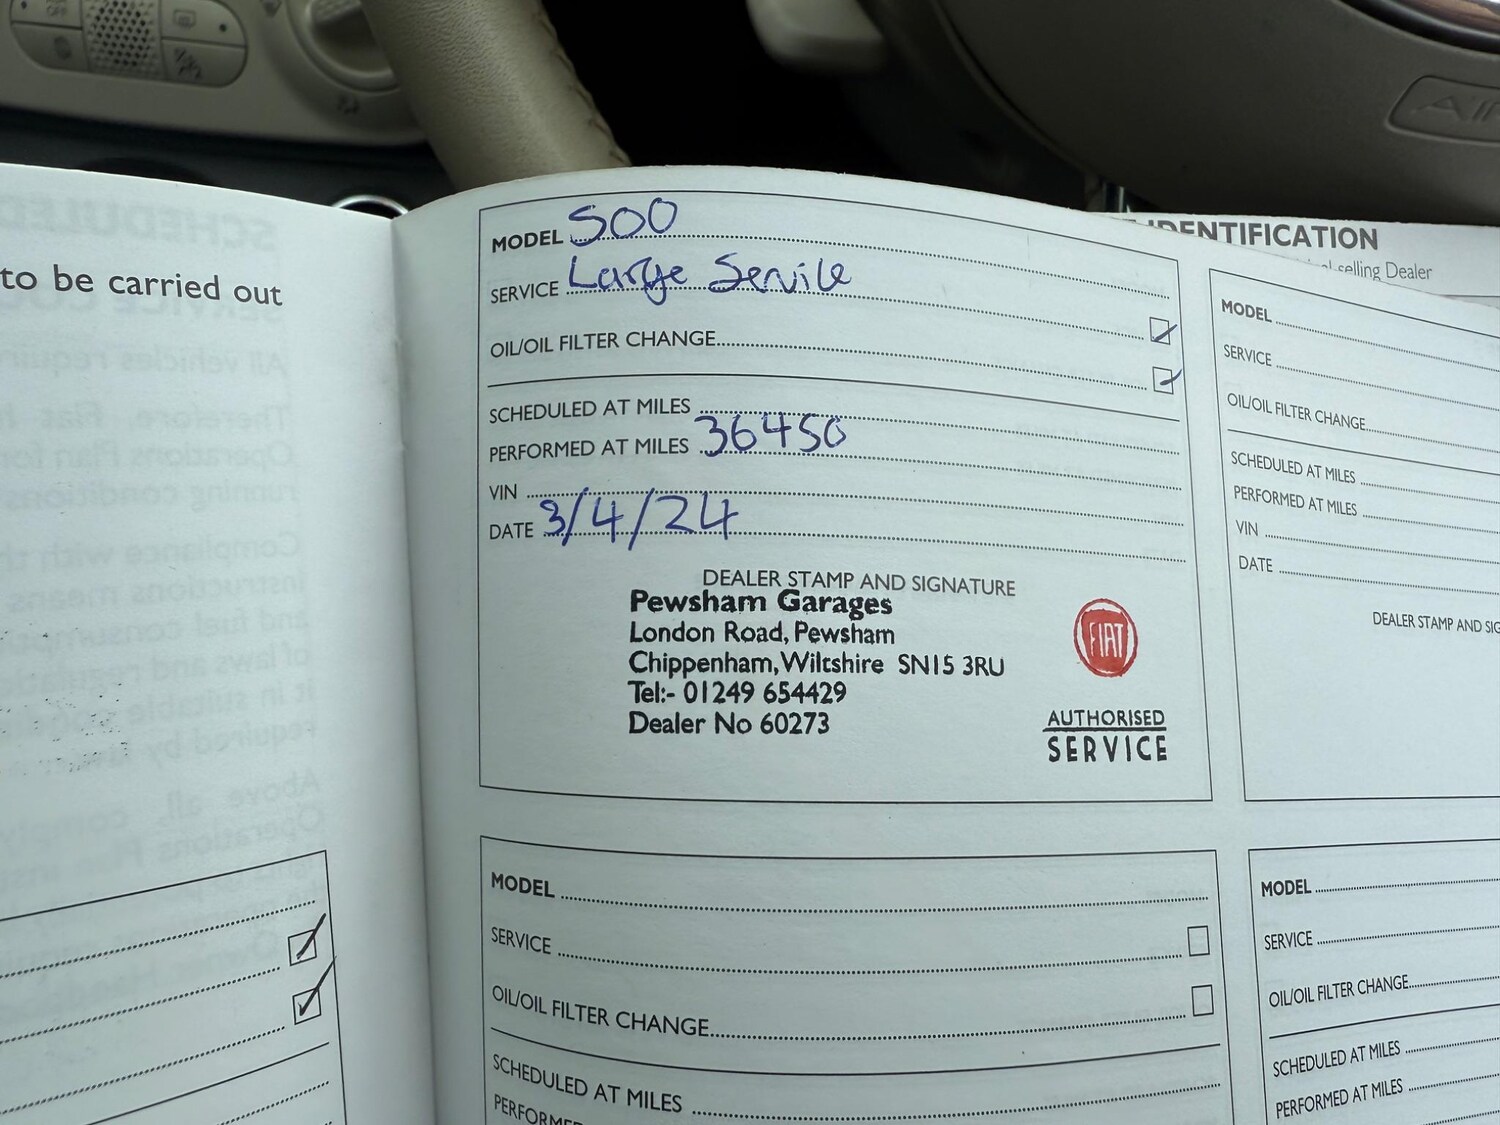 OFF
AIR
to be carried out
MODEL 500
SERVICE Large Service
OIL/OIL FILTER CHANGE
SCHEDULED AT MILES
PERFORMED AT MILES 36450
VIN
DATE 3/4/24
DEALER STAMP AND SIGNATURE
Pewsham Garages
London Road, Pewsham
Chippenham, Wiltshire SN15 3RU
Tel:- 01249 654429
Dealer No 60273
FIAT
AUTHORISED
SERVICE
IDENTIFICATION
selling Dealer
MODEL
SERVICE
OIL/OIL FILTER CHANGE
SCHEDULED AT MILES
PERFORMED AT MILES
VIN
DATE
DEALER STAMP AND SIG
MODEL
SERVICE
OIL/OIL FILTER CHANGE
SCHEDULED AT MILES
PERFORMED
MODEL
SERVICE
OIL/OIL FILTER CHANGE
SCHEDULED AT MILES
PERFORMED AT MILES